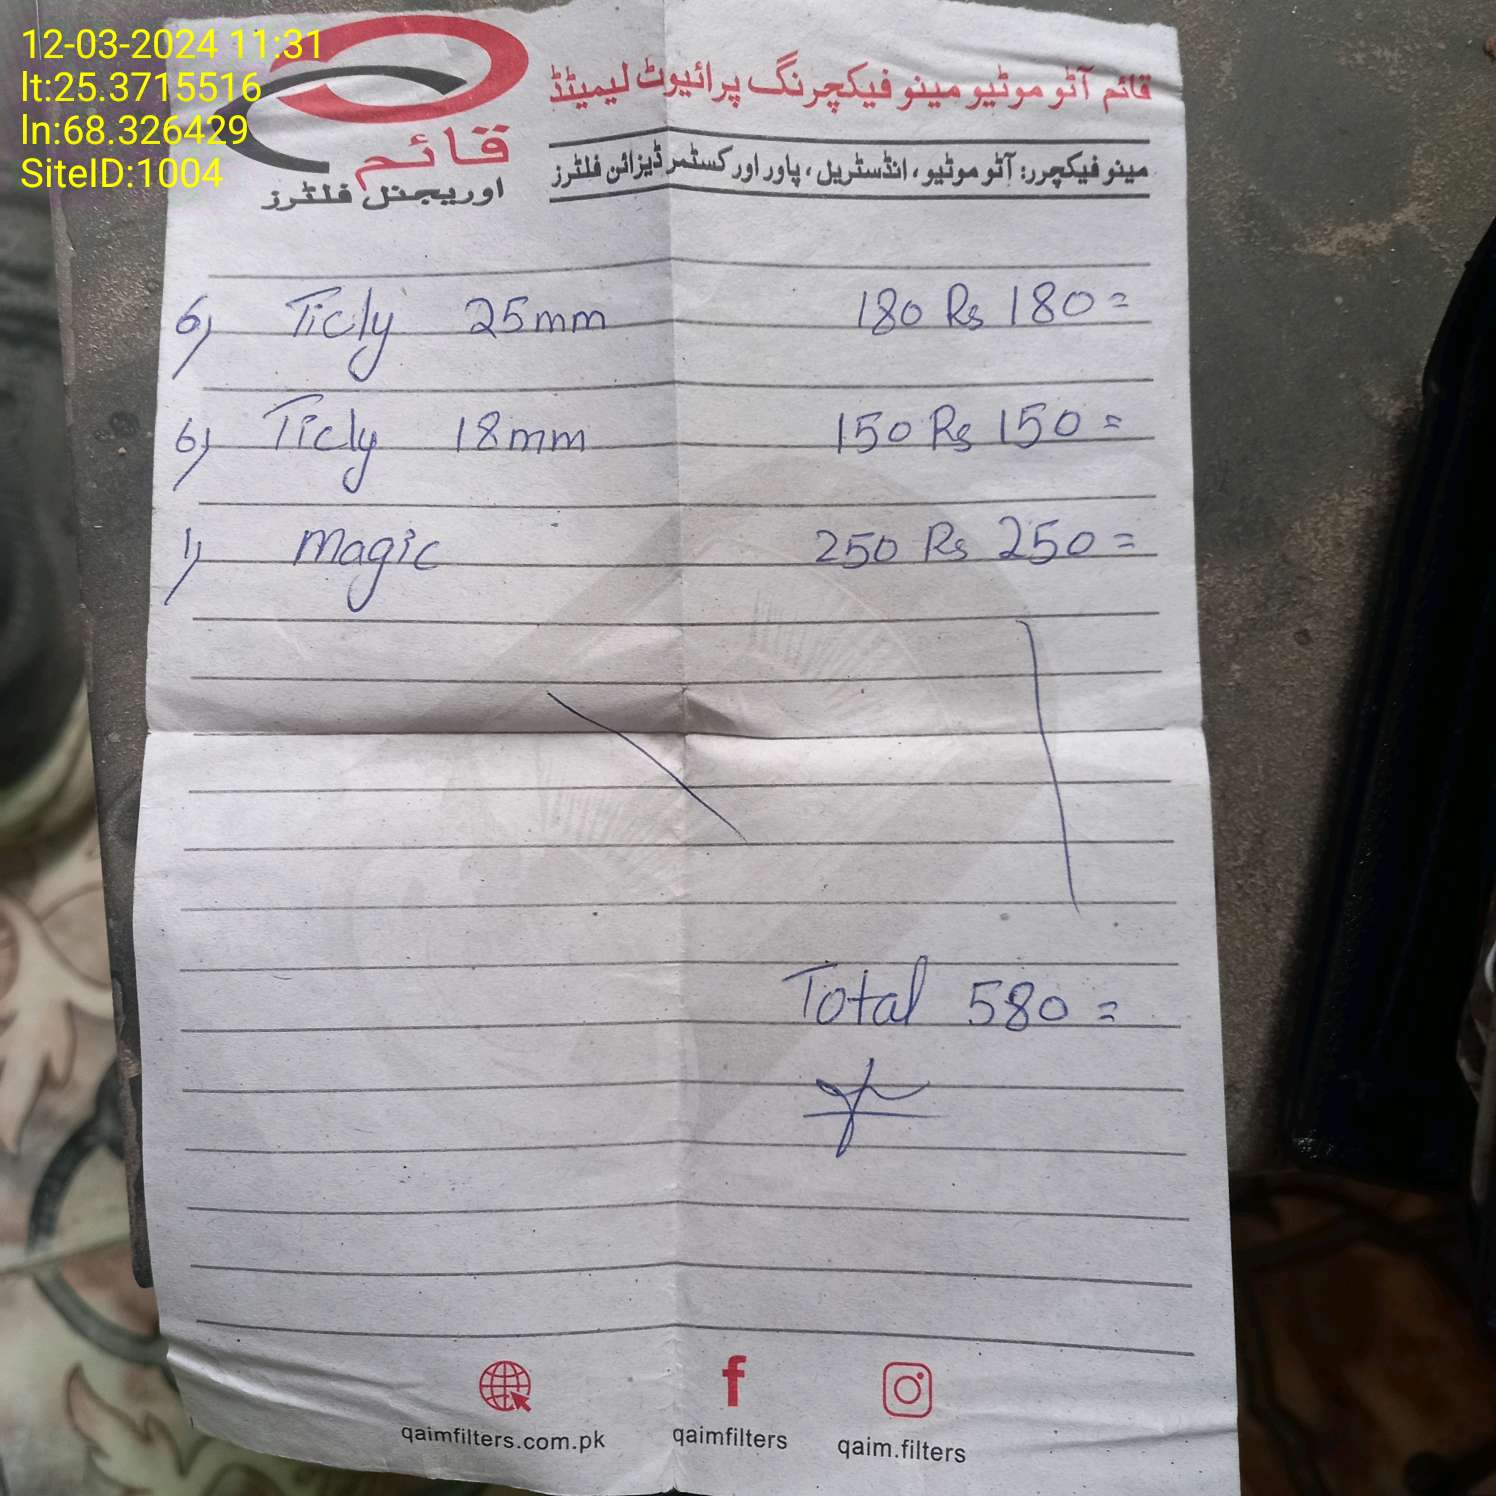 12-03-2024 11:31
lt:25.3715516
ln:68.326429
SiteID:1004
قائم
اوریجنل فلٹرز
قائم آٹو موٹیو مینو فیکچرنگ پرائیوٹ لیمیٹڈ
مینو فیکچرر: آٹو موٹیو، انڈسٹریل، پاور اور کسٹمر ڈیزائن فلٹرز
6) Ticly 25mm 180 Rs 180=
6) Ticly 18mm 150 Rs 150=
1) magic 250 Rs 250=
Total 580=
qaimfilters.com.pk
qaimfilters
qaim.filters